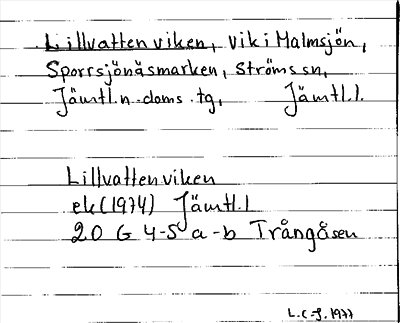 Lillvattenviken, vik i Malmsjön,
Sporrsjönäsmarken, Ströms sn,
Jämtl.n. doms. tg, Jämtl.l.
Lillvattenviken
ek (1974) Jämtl.l
20 G 4-5 a-b Trångåsen
L.C-J. 1977